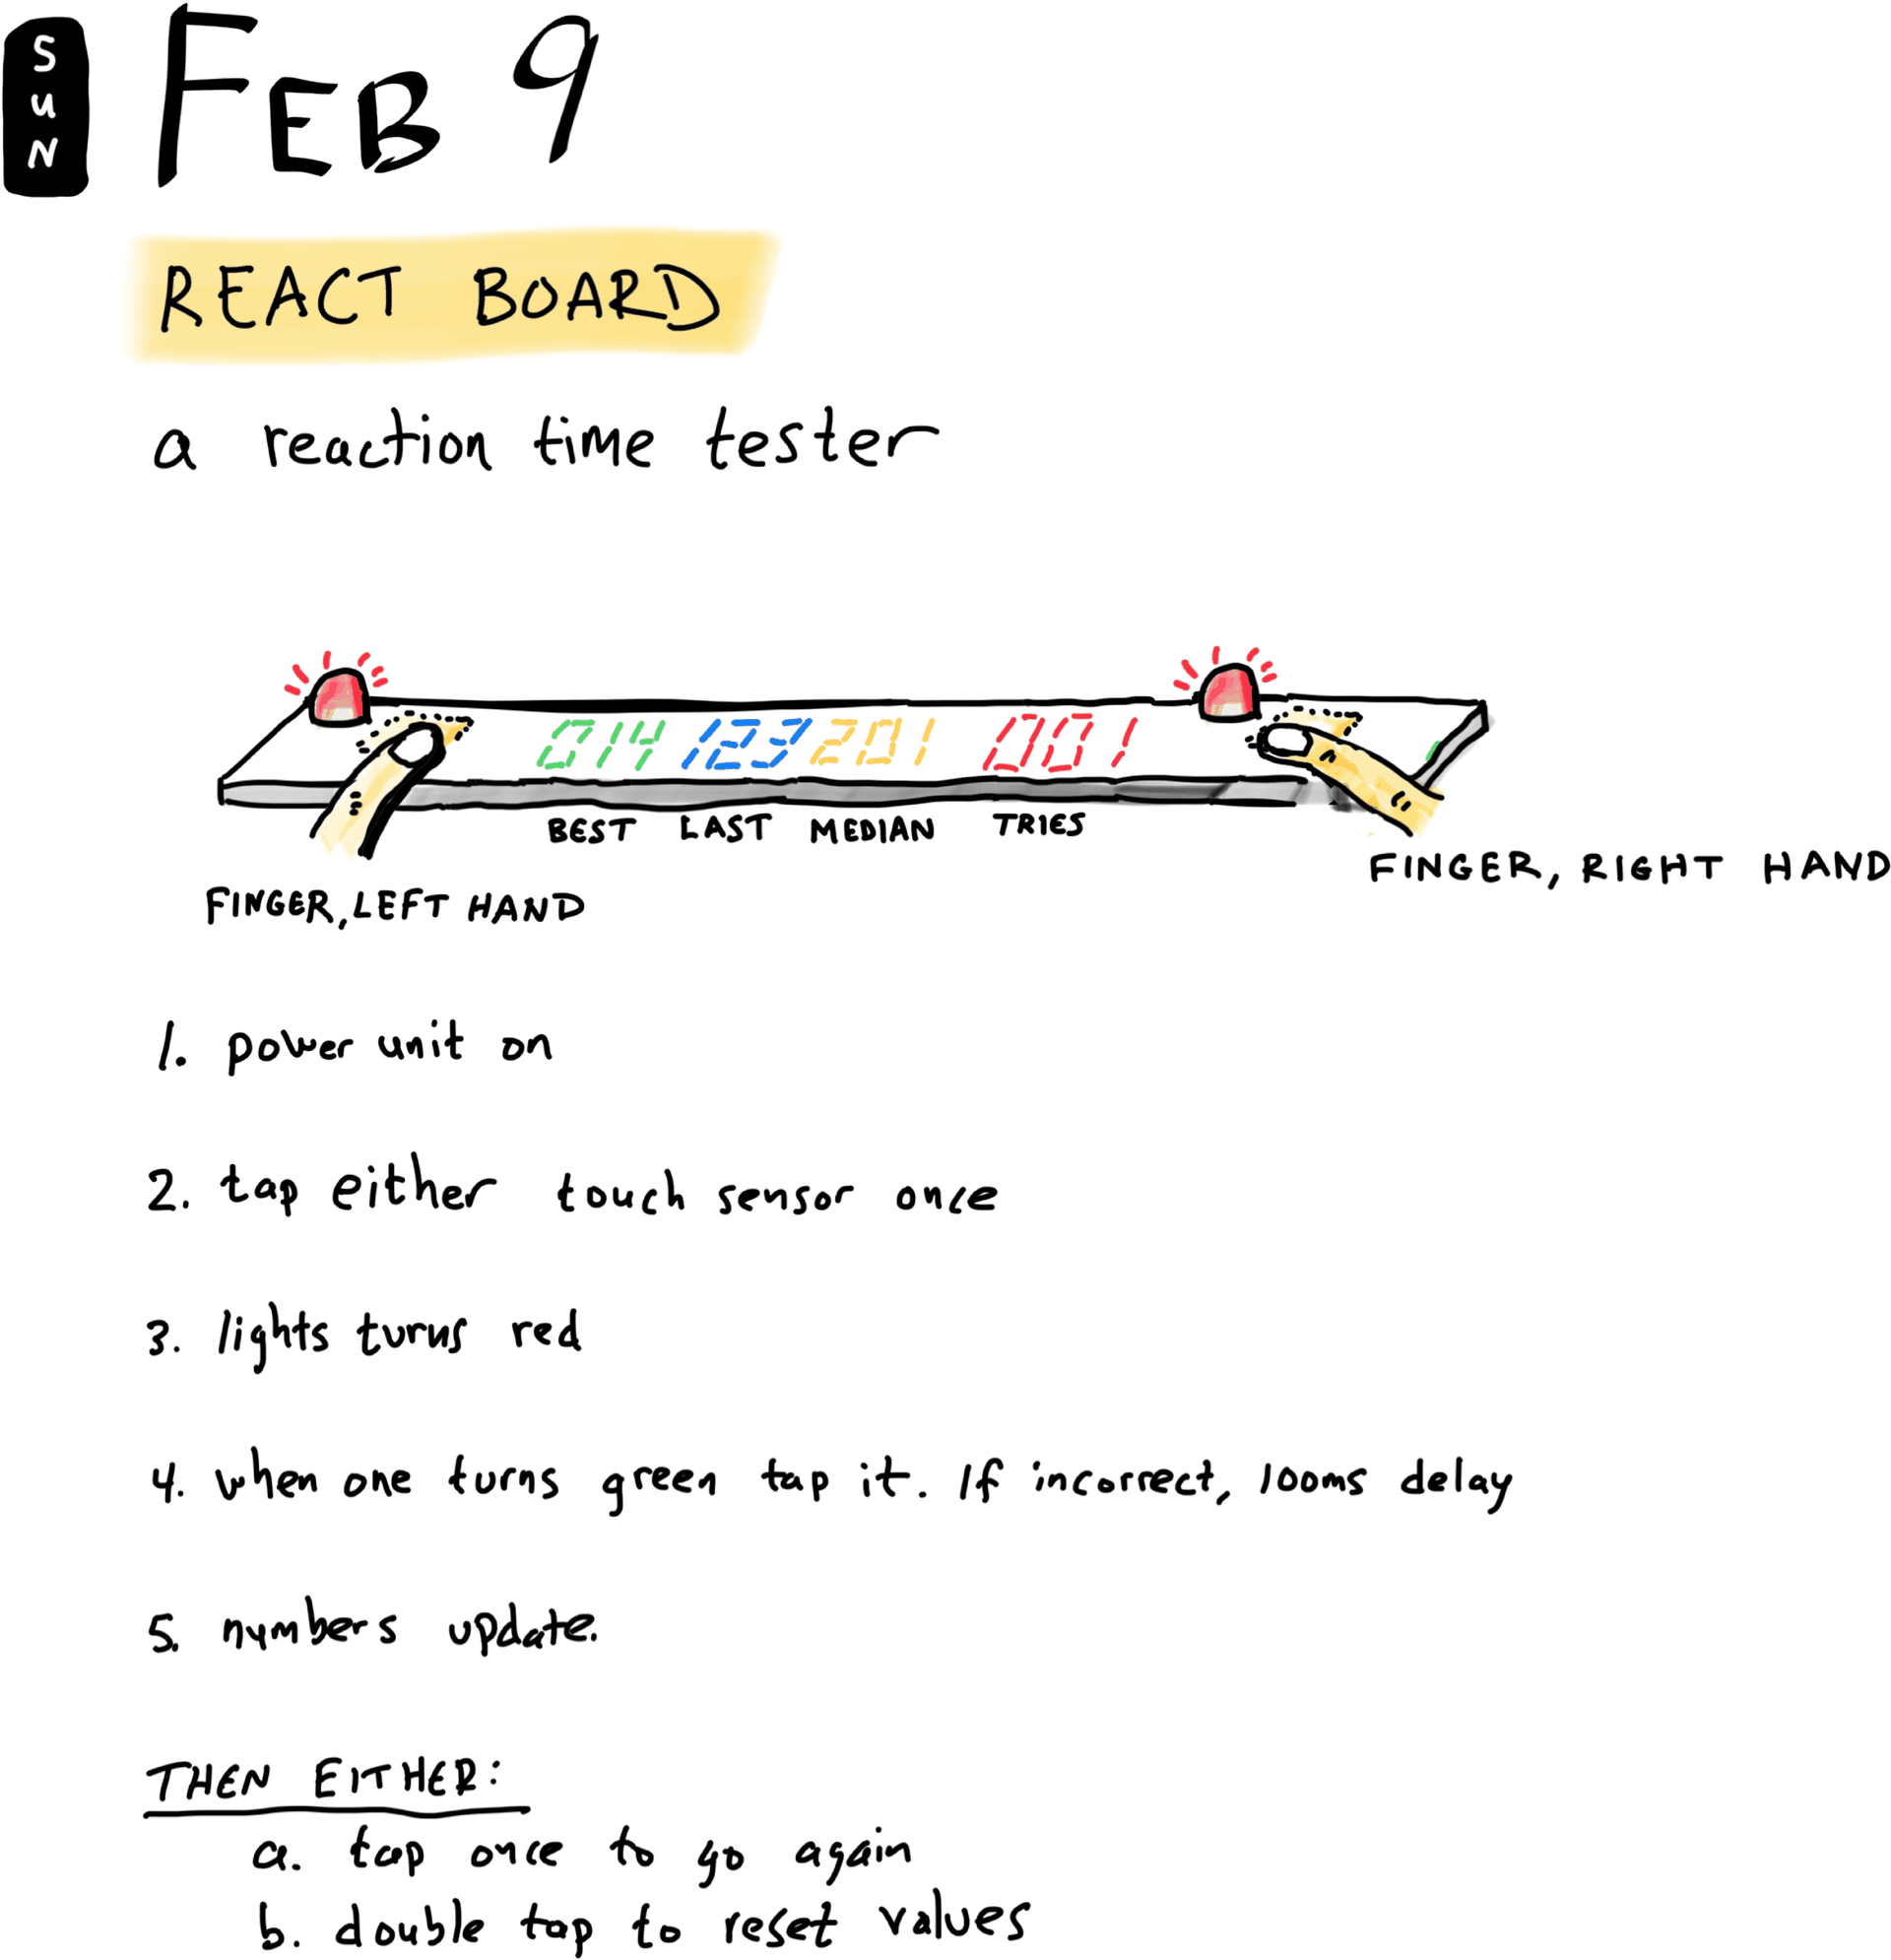 SUN
FEB 9
REACT BOARD
a reaction time tester
014 123 201 001
BEST LAST MEDIAN TRIES
FINGER, RIGHT HAND
FINGER, LEFT HAND
1. power unit on
2. tap either touch sensor once
3. lights turns red
4. when one turns green tap it. If incorrect, 100ms delay
5. numbers update.
THEN EITHER:
a. tap once to go again
b. double tap to reset values